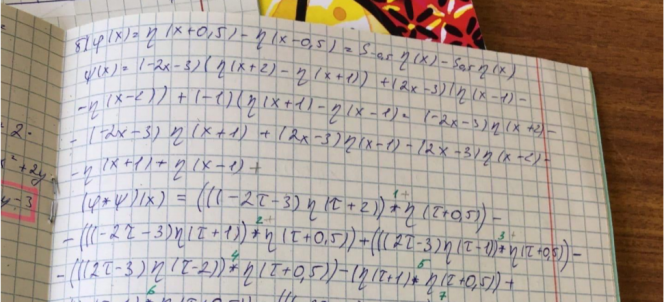 б) φ(x) = η(x+0,5) - η(x-0,5) = S-0,5 η(x) - S0,5 η(x)
ψ(x) = (-2x-3)(η(x+2) - η(x+1)) + (2x-3)(η(x-1) -
- η(x-2)) + (-1)(η(x+1) - η(x-1) = (-2x-3)η(x+2) -
- (-2x-3) η(x+1) + (2x-3)η(x-1) - (2x-3)η(x-2) -
- η(x+1) + η(x-1) +
(φ*ψ)(x) = (((-2τ-3) η(τ+2)) * η(τ+0,5)) -
- (((-2τ-3)η(τ+1)) * η(τ+0,5)) + (((2τ-3)η(τ-1)) * η(τ+0,5)) -
- (((2τ-3)η(τ-2)) * η(τ+0,5)) - (η(τ+1) * η(τ+0,5)) +
= 2.
+2y
y-3
1+
2+
3
4
5
6
7